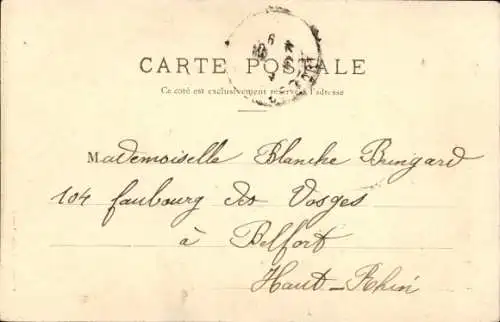 CARTE POSTALE
Ce côté est exclusivement réservé à l'adresse
Mademoiselle Blanche Bungard
104 faubourg des Vosges
à Belfort
Haut-Rhin